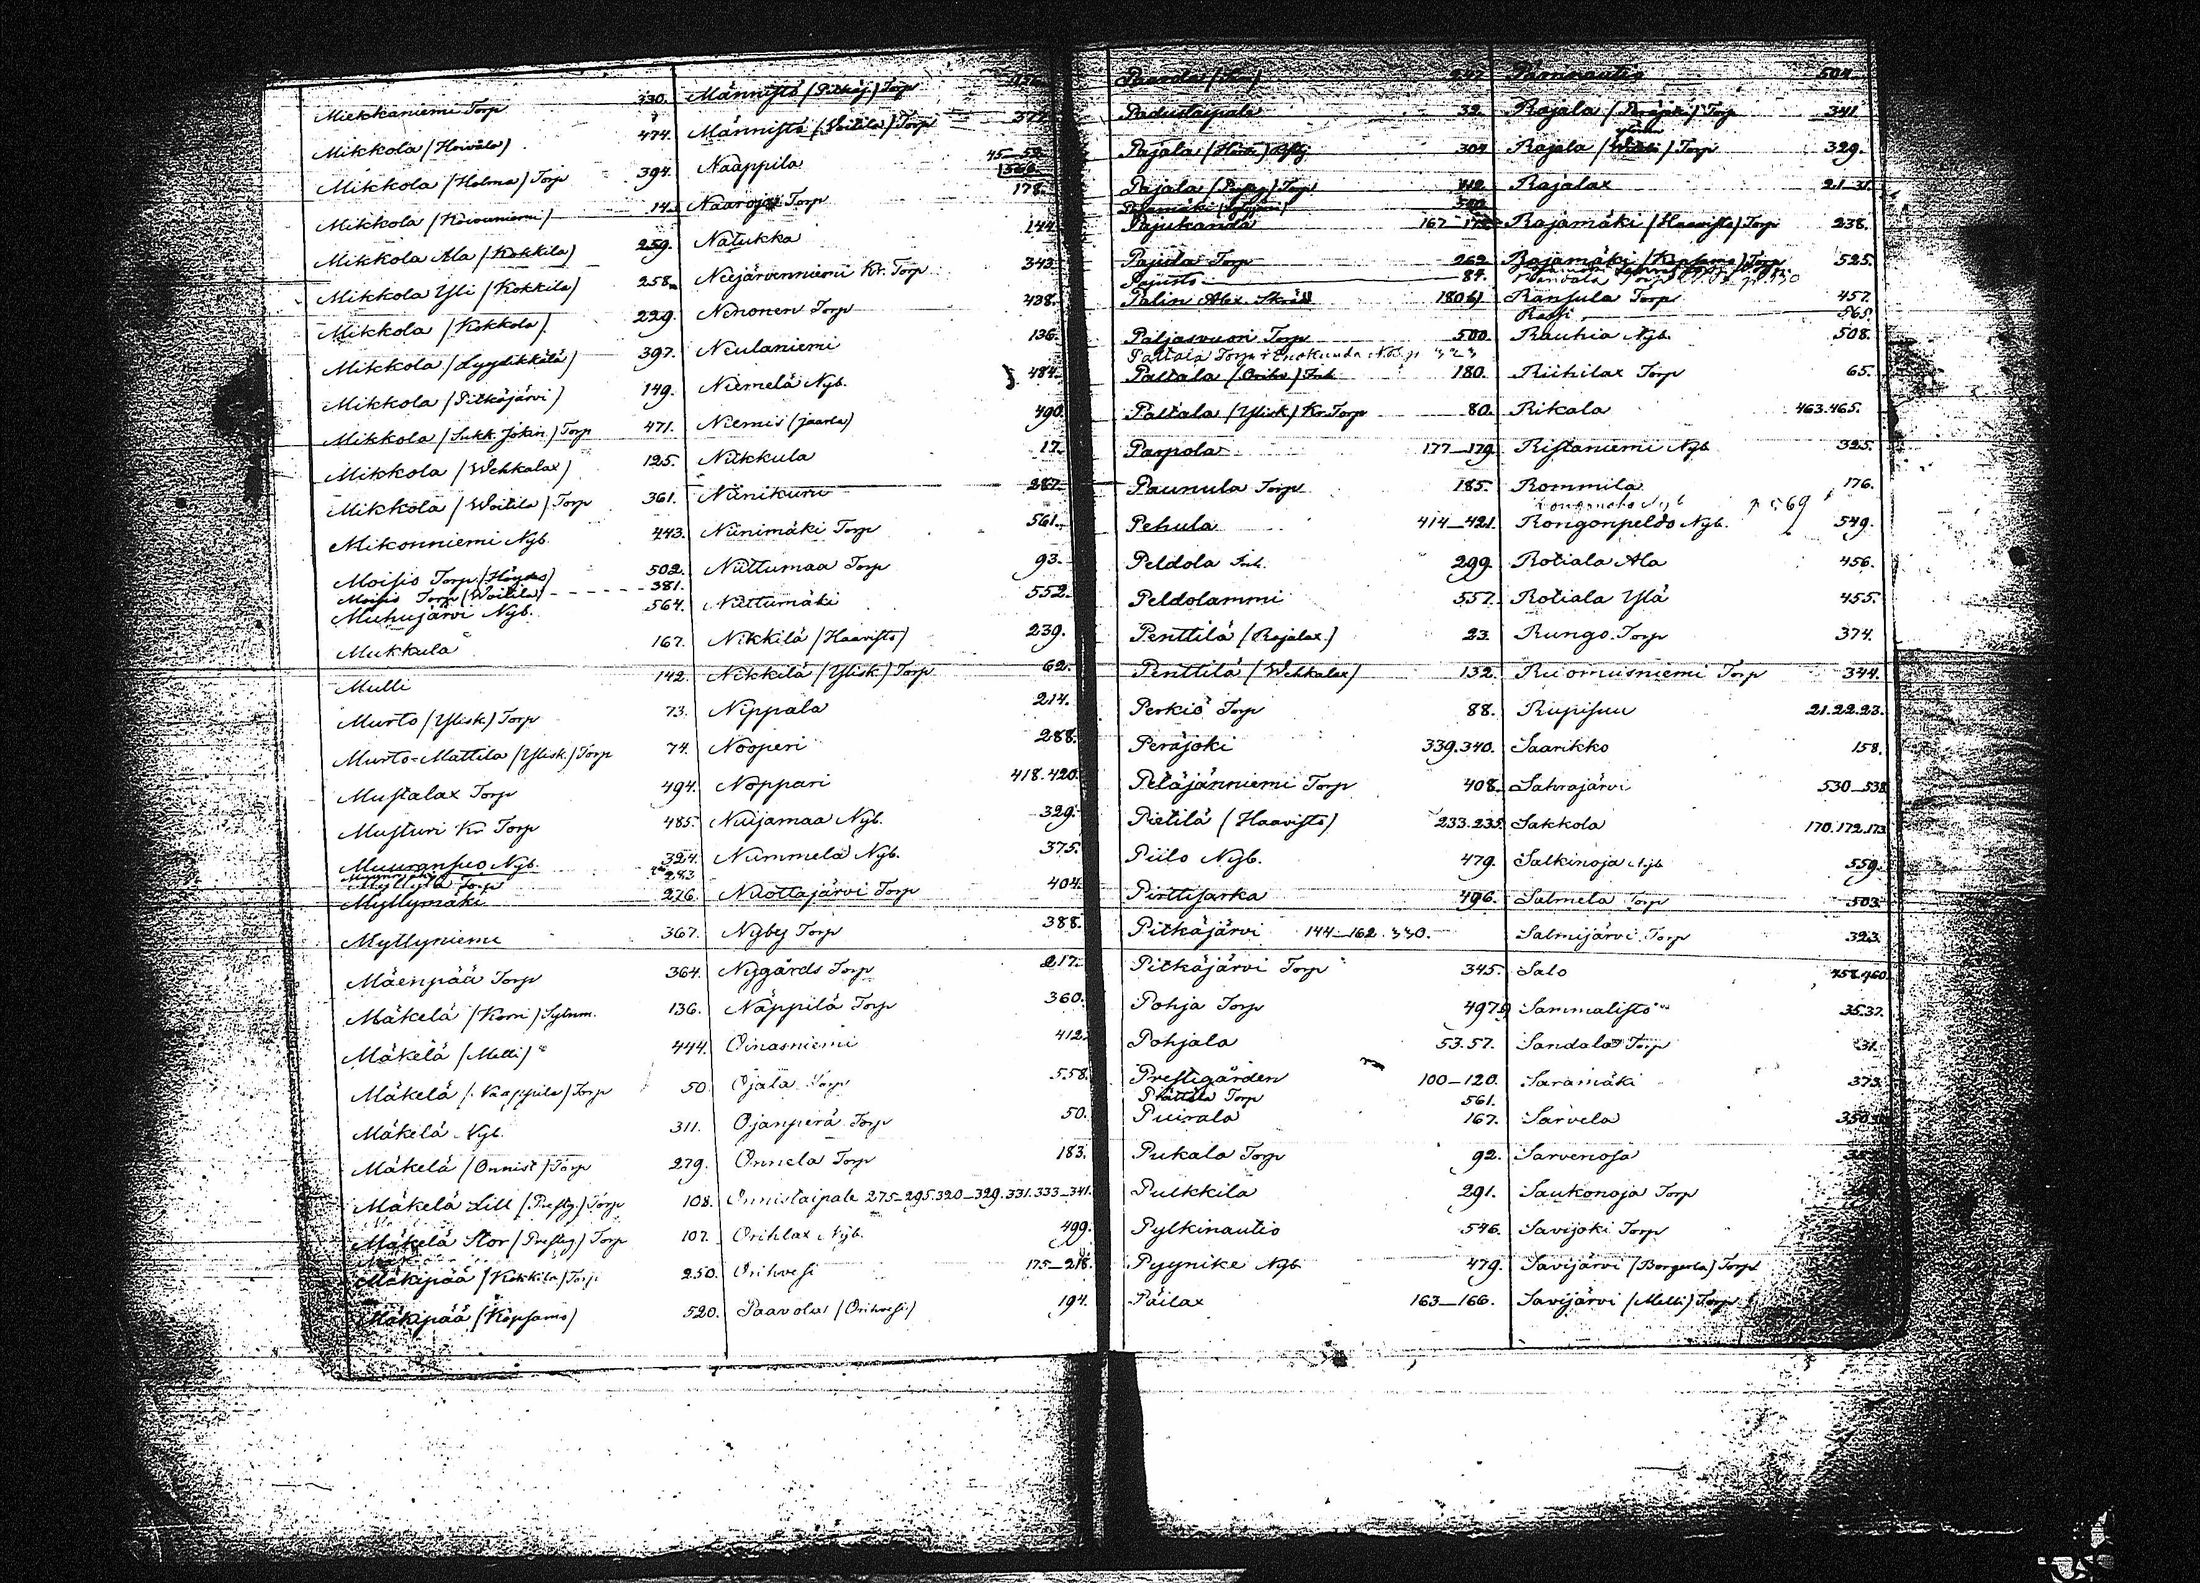 Miekkaniemi Torp 330.
Mikkola (Hoivala) 474.
Mikkola (Holma) Torp 394.
Mikkola (Hirvuniemi) 14.
Mikkola Ala (Kokkila) 259.
Mikkola Yli (Kokkila) 258.
Mikkola (Kokkola) 229.
Mikkola (Lyylikkilä) 397.
Mikkola (Pitkäjärvi) 149.
Mikkola (Sukk. Jokin.) Torp 471.
Mikkola (Wehkalax) 125.
Mikkola (Woitila) Torp 361.
Mikonniemi Nyb. 443.
Moisio Torp (Höydes) 502.
Moisio Torp (Woitila) 381.
Muhujärvi Nyb. 564.
Mukkula 167.
Mulli 142.
Murto (Ylisk.) Torp 73.
Murto-Mattila (Ylisk.) Torp 74.
Mustalax Torp 494.
Musturi Kr. Torp 485.
Muuransuo Nyb. 324.
Myllylä Torp 283
Myllymäki 276.
Myllyniemi 367.
Mäenpää Torp 364.
Mäkelä (Korri) Sytnm. 136.
Mäkelä (Melli) 444.
Mäkelä (Naappila) Torp 50
Mäkelä Nyb. 311.
Mäkelä (Onnist) Torp 279.
Mäkelä Lill (Prestg.) Torp 108.
Mäkelä Stor (Prestg.) Torp 107.
Mäkipää (Kokkila) Torp 250.
Mäkipää (Köpsamo) 520.
Männistö (Pitkäj.) Torp
Männistö (Woitila) Torp
Naappila 45-52.
Naaroja Torp 178.
Natukka 144
Neejärvenniemi Kr. Torp 343.
Nenonen Torp 438.
Neulaniemi 136.
Niemelä Nyb. 484.
Niemis (Jaarla) 490.
Niikkula 17.
Niinikuru 287.
Niinimäki Torp 561.
Niittumaa Torp 93.
Niittumäki 552.
Nikkilä (Haavisto) 239.
Nikkilä (Ylisk.) Torp 62.
Nippala 214.
Nooperi 288.
Noppari 418.420.
Nuijamaa Nyb. 329.
Nummela Nyb. 375.
Nuottajärvi Torp 404.
Nyby Torp 388.
Nygårds Torp 217.
Näppilä Torp 360.
Oinasniemi 412.
Ojala Torp 558.
Ojanperä Torp 50.
Onnela Torp 183.
Onnistaipale 275-295.320-329.331.333-341.
Orihlax Nyb. 499.
Orihvesi 175-218.
Paavola (Orihvesi) 194.
Padustaipale 32.
Pajala 304
Pajala Torp 412.
Pajukanda 167-173.
Pajula Torp 262.
Pajusto 84.
Palin Alex. 180
Paljasvuori Torp 500.
Paltala (Orihv.) Inh. 180.
Paltala (Ylisk) Kr. Torp 80.
Parpola 177-179.
Paunula Torp 185.
Pehula 414-421.
Peldola Inh. 299.
Peldolammi 557.
Penttilä (Rajalax.) 23.
Penttilä (Wehkalax) 132.
Perkiö Torp 88.
Peräjoki 339.340.
Petäjänniemi Torp 408.
Pietilä (Haavisto) 233.235.
Piilo Nyb. 479.
Pirttisarka 496.
Pitkäjärvi 144-162.330.
Pitkäjärvi Torp 345.
Pohja Torp 497.
Pohjala 53.57.
Prestgården 100-120.
Prättälä Torp 561.
Puirala 167.
Pukala Torp 92.
Pulkkila 291.
Pylkinautio 546.
Pyynike Nyb. 479.
Päilax 163-166.
504
Rajala (Peräjoki) Torp 341
Rajala Torp 329.
Rajalax 21-31.
Rajamäki (Haavisto) Torp 238.
Rajamäki (Köpsamo) Torp 525.
Ransula Torp 457.
Rassi 565.
Rauhia Nyb. 508.
Riihilax Torp 65.
Rikala 463.465.
Ristaniemi Nyb. 325.
Rommila 176.
Rongonpeldo Nyb. 549.
Rotiala Ala 456.
Rotiala Ylä 455.
Rungo Torp 374.
Ruomusniemi Torp 344.
Rupisuu 21.22.23.
Saarikko 158.
Sahrajärvi 530-538
Sakkola 170.172.173
Salkinoja Nyb 559.
Salmela Torp 503.
Salmijärvi Torp 323.
Salo 458.460.
Sammalisto 35.37.
Sandala Torp 31.
Saramäki 373.
Sarvela
Sarvenoja
Saukonoja Torp
Savijoki Torp
Savijärvi (Borgerla) Torp
Savijärvi (Melli) Torp